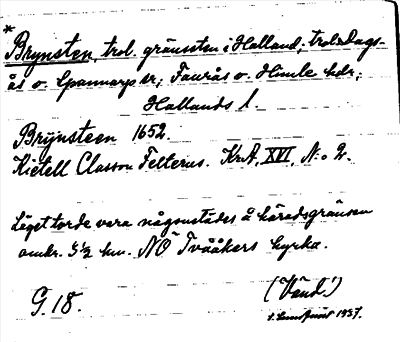 *
Brynsten, trol. gränssten i Halland, trol. Dags-
ås o. Spannarp sr; Faurås o. Himle hdr;
Hallands l.
Brÿnsteen 1652.
Kietell Classon Felterus. KrA, XVI, N:o 2.
Läget torde vara någonstädes å häradsgränsen
omkr. 5½ km. NÖ Tvååkers kyrka.
G. 18.
(Vänd!)
1937.